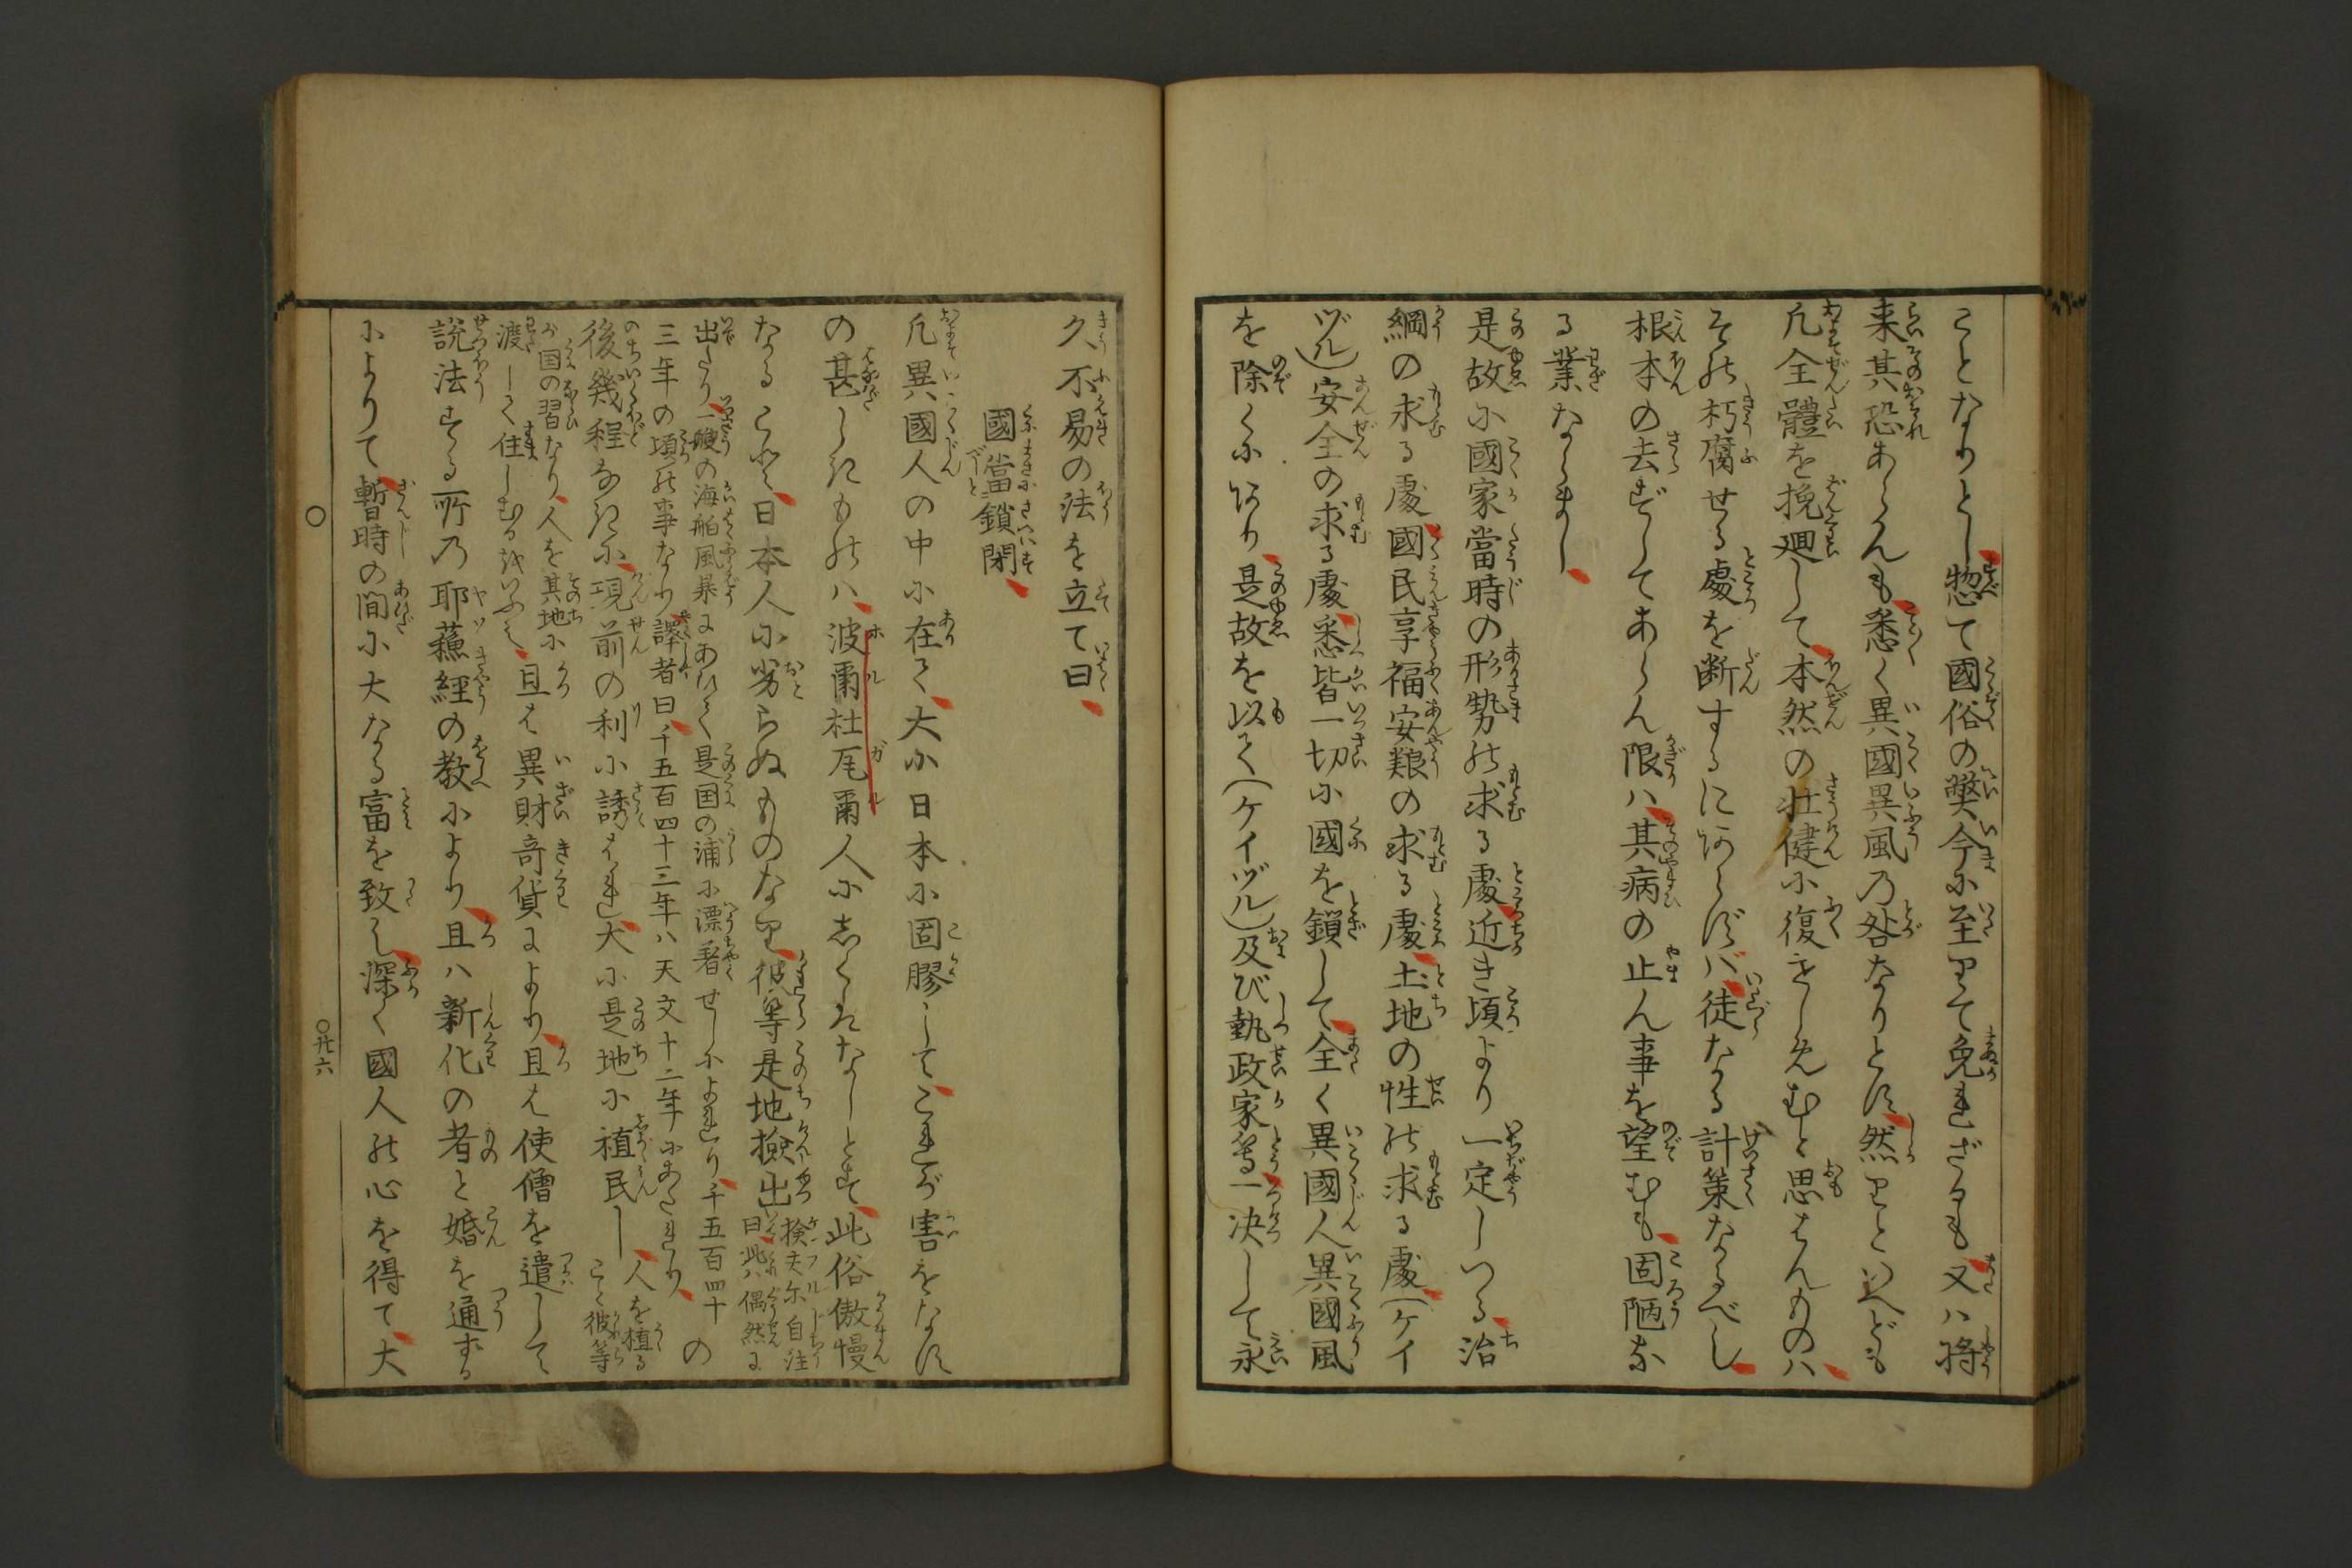 ことなりとし惣て國俗の獘今に至りて免れざるも又ハ将
来其恐あらんも悉く異國異風乃咎なりとす然りといへども
凡全體を挽廻して本然の壮健に復をしめむと思はんものハ
その朽腐せる處を断するにあらずバ徒たる計策なるべし
根本の去ずしてあらん限ハ其病の止ん事を望むも固陋な
る業ならまし
是故に國家當時の形勢の求る處近き頃より一定しつる治
綱の求る處國民享福安穏の求る處土地の性の求る處(ケイ
ヅル)安全の求る處悉皆一切に國を鎖して全く異國人異國風
を除くにあり是故を以て(ケイヅル)及び執政家等一决して永
久不易の法を立て曰
國當鎖閉
凡異國人の中に在て大に日本に固膠してこれが害をなす
の甚しきものハ波爾杜尾爾人にしくはなしとす此俗傲慢
なること日本人に劣らぬものなり彼等是地撿出
撿夫尓自注
曰此ハ偶然に
出たり一艘の海舶風暴にあひて是国の浦に漂着せしによれり千五百四十
三年の頃の事なり譯者曰千五百四十三年ハ天文十二年にあたれり
の
後幾程なきに現前の利に誘はれ大に是地に植民し
人を植る
こと彼等
が国の習なり人を其地に
渡して住しむるをいふ
且は異財奇貨によりて且は使僧を遣して
説法する所乃耶蘓經の教により且ハ新化の者と婚を通する
によりて暫時の間に大なる富を致し深く國人の心を得て大
○
○廾六